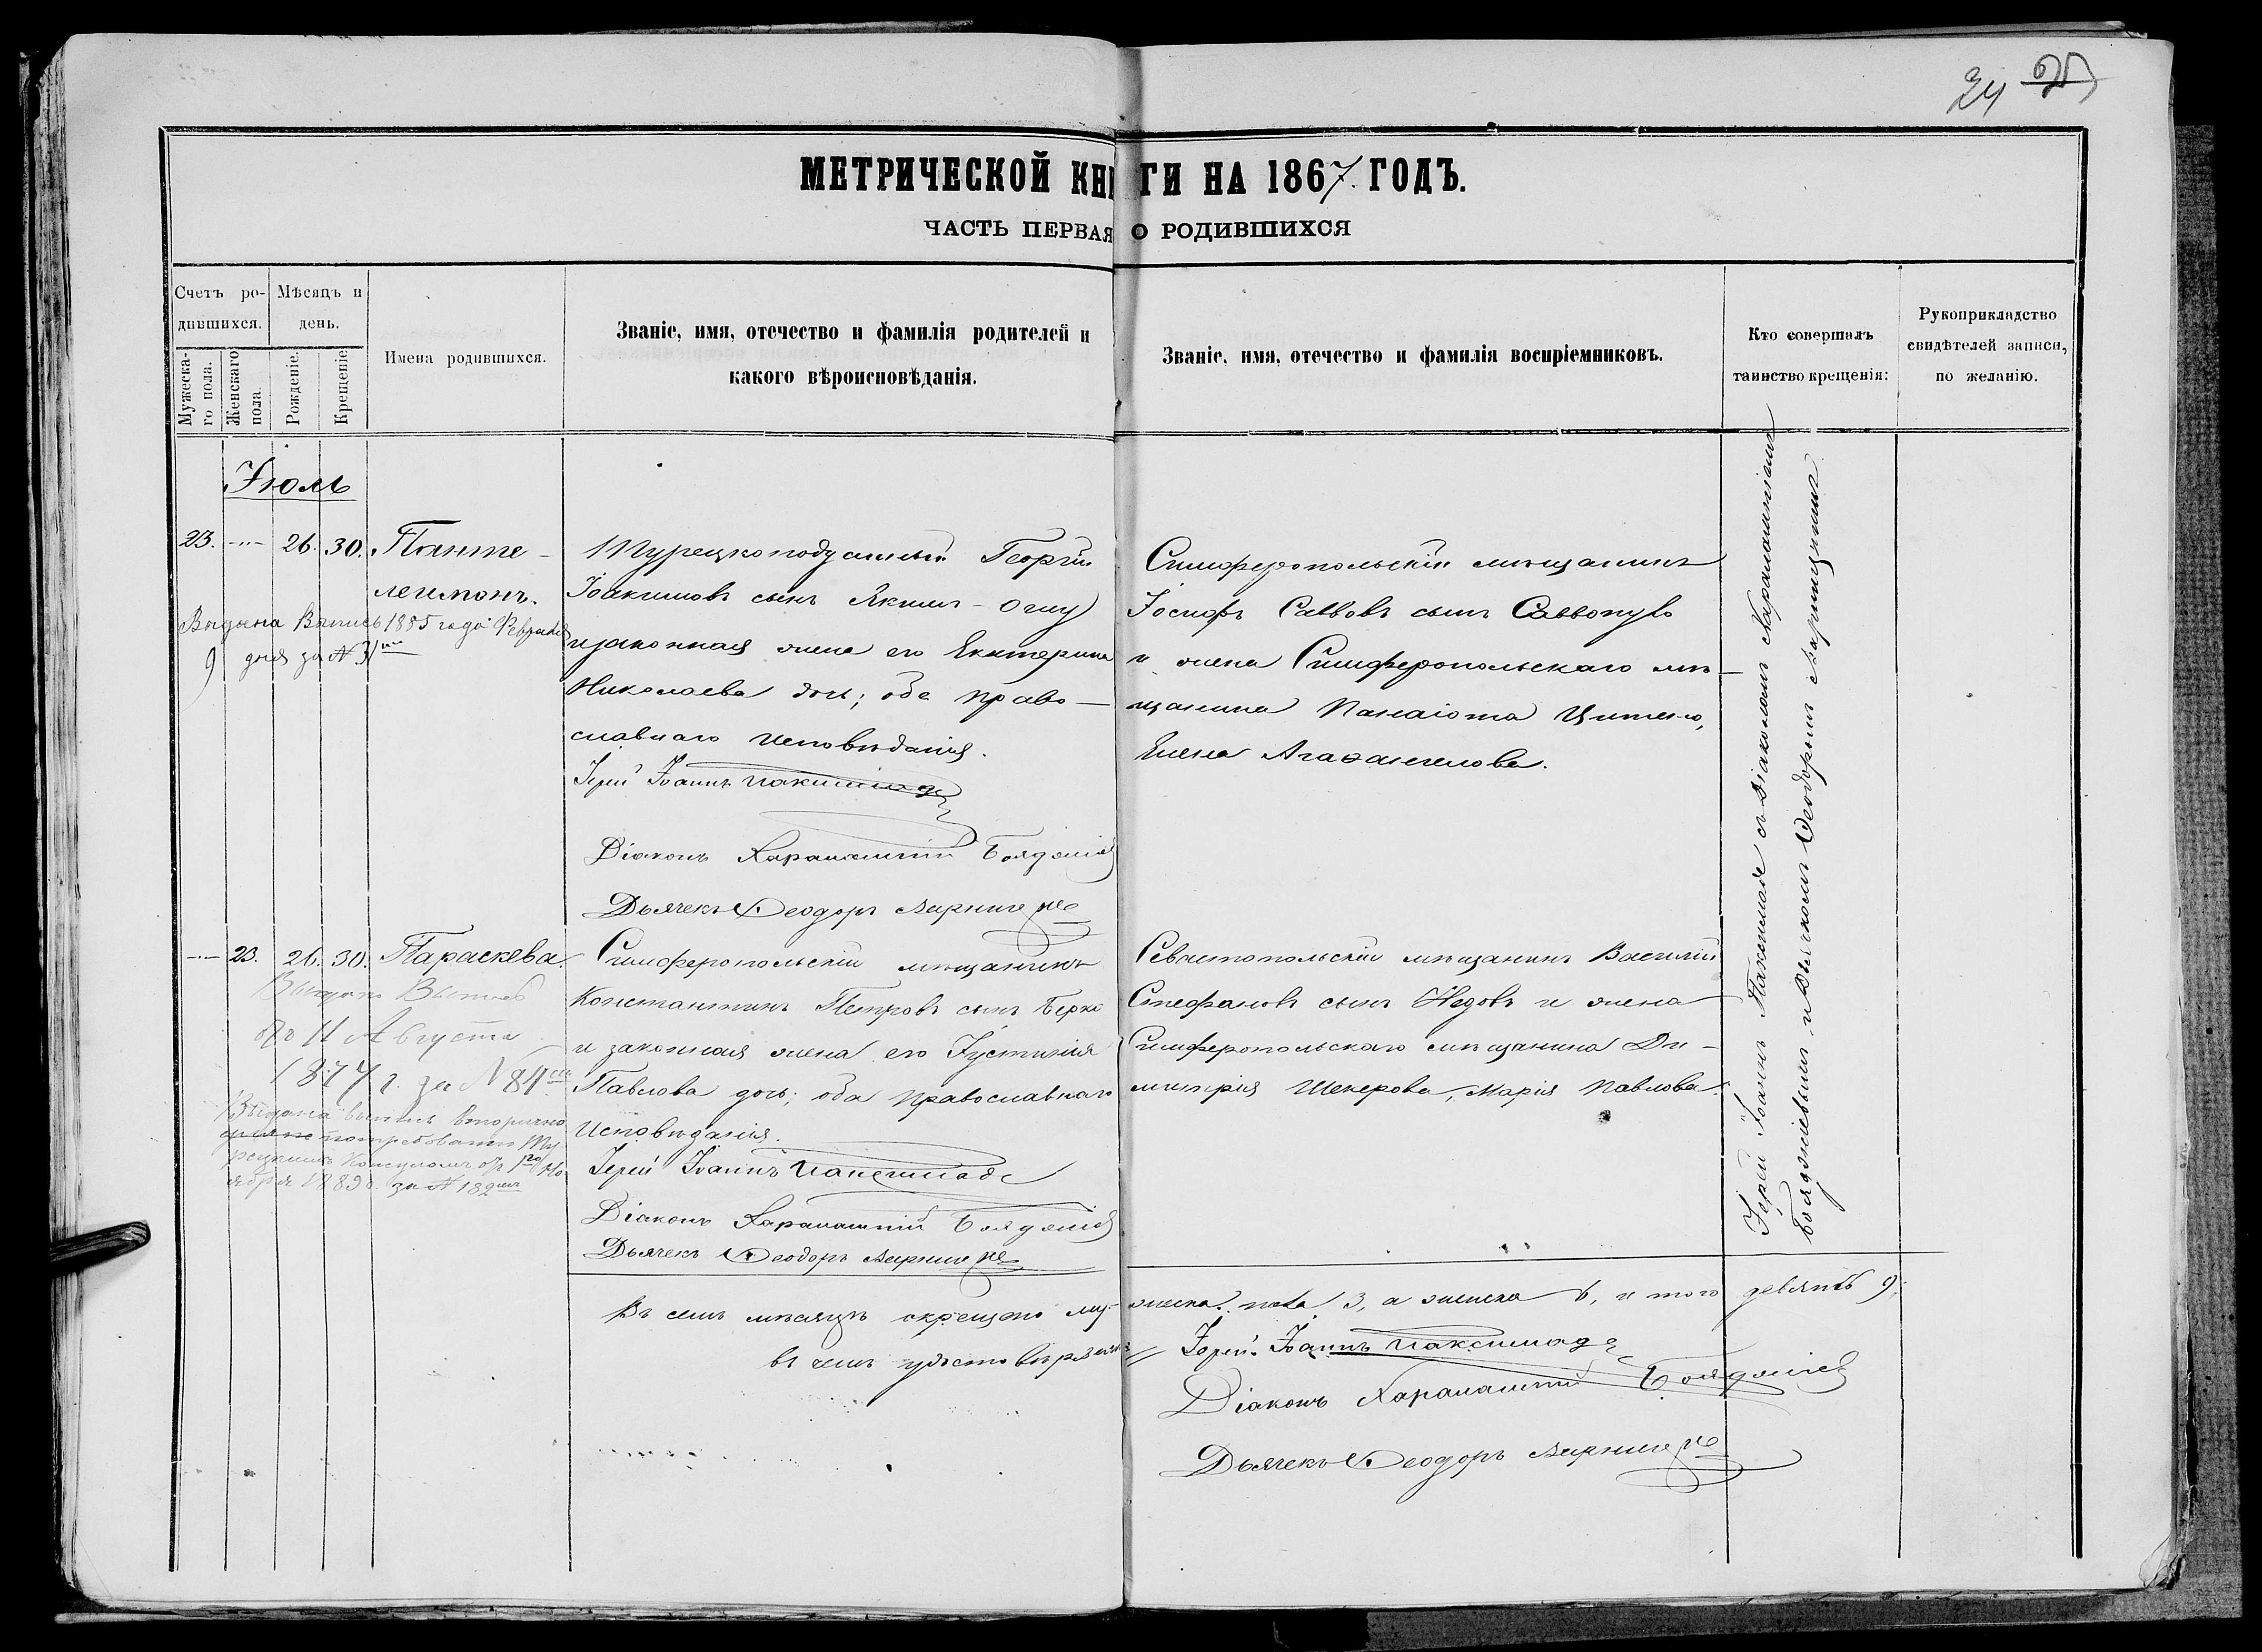 24
МЕТРИЧЕСКОЙ КНИГИ НА 1867. ГОДЪ.
ЧАСТЬ ПЕРВАЯ О РОДИВШИХСЯ
Счетъ ро-
дившихся.
Мужеска-
го пола.
Женскаго
пола.
Мѣсяцъ и
день.
Рожденіе.
Крещеніе.
Имена родившихся.
Званіе, имя, отечество и фамилія родителей и
какого вѣроисповѣданія.
Званіе, имя, отечество и фамилія воспріемниковъ.
Кто совершалъ
таинство крещенія:
Рукоприкладство
свидѣтелей записи,
по желанію.
Іюль
23. -··- 26. 30. Панте-
леимонъ.
Выдана Выпись 1885 года Февраля
9 дня за № 31
Турецкоподданный Георгій
Іоакимовъ сынъ Якимъ-Оглу
и законная жена его Екатерина
Николаева дочь; оба право-
славнаго исповѣданія.
Іерей Іоаннъ Паксимаде
Діаконъ Харалампій Бояджіев
Дьячекъ Ѳеодоръ
Симферопольскій мѣщанинъ
Іосифъ Саввовъ сынъ Саввопуло
и жена Симферопольскаго мѣ-
щанина Панаіота
Елена Агаѳангелова.
-··- 23. 26. 30. Параскева.
Выдана Выпись
отъ 11 Августа
1877 г. за № 84
Выдана выпись вторично
по требованію Ту-
рецкимъ Консуломъ отъ 1го Но-
ября 1889 г. за № 182
Симферопольскій мѣщанинъ
Константинъ Петровъ сынъ Берко
и законная жена его Іустинія
Павлова дочь; оба православнаго
исповѣданія.
Іерей Іоаннъ Паксимаде
Діаконъ Харалампій Бояджіев
Дьячекъ Ѳеодоръ
Севастопольскій мѣщанинъ Василій
Стефановъ сынъ Недовъ и жена
Симферопольскаго мѣщанина Ди-
митрія Шекерова, Марія Павлова.
Іерей Іоаннъ Паксимаде съ діакономъ Харалампіемъ
Бояджіевымъ и дьячкомъ Ѳеодоромъ
Въ семъ мѣсяцѣ окрещено му-жеска пола 3, а женска 6, и того девять 9;
въ чемъ удостовѣряемъ Іерей Іоаннъ Паксимаде
Діаконъ Харалампій Бояджіев
Дьячекъ Ѳеодоръ